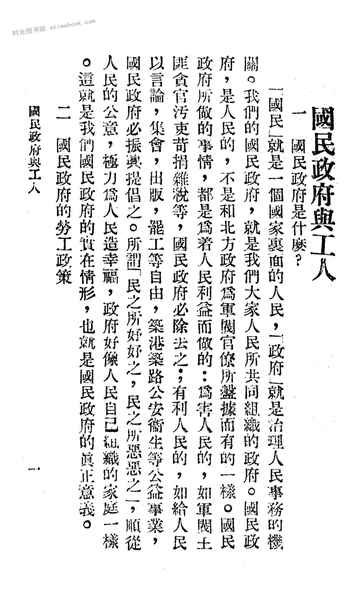 國民政府與工人
一 國民政府是什麼？
「國民」就是一個國家裏面的人民，「政府」就是治理人民事務的機
關。我們的國民政府，就是我們大家人民所共同組織的政府。國民政
府，是人民的，不是和北方政府爲軍閥官僚所盤據而有的一樣。國民
政府所做的事情，都是爲着人民利益而做的：爲害人民的，如軍閥土
匪貪官污吏苛捐雜稅等，國民政府必除去之；有利人民的，如給人民
以言論，集會，出版，罷工等自由，築港築路公安衞生等公益事業，
國民政府必振興提倡之。所謂「民之所好好之，民之所惡惡之」，順從
人民的公意，極力爲人民造幸福，政府好像人民自己組織的家庭一樣
。這就是我們國民政府的實在情形，也就是國民政府的眞正意義。
二 國民政府的勞工政策
國民政府與工人
一